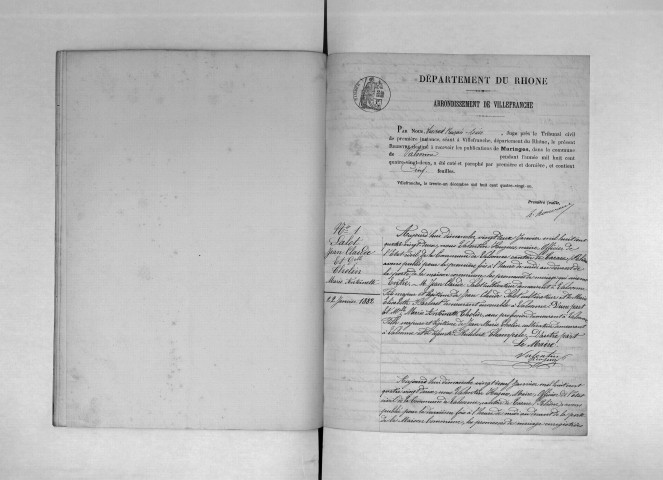 DÉPARTEMENT DU RHONE
ARRONDISSEMENT DE VILLEFRANCHE
PAR NOUS, Juge près le Tribunal civil
de première instance, séant à Villefranche, département du Rhône, le présent
REGISTRE destiné à recevoir les publications de Mariages, dans la commune
de Valsonne pendant l'année mil huit cent
quatre-vingt-deux, a été coté et paraphé par première et dernière, et contient
neuf feuilles.
Villefranche, le trente-un décembre mil huit cent quatre-vingt-un.
Première feuille,
N° 1
Salet
Jean Claude
Et Dlle
Tholin
Marie Antoinette
22 Janvier 1882
Aujourd'hui dimanche, vingt deux Janvier mil huit cent
quatre vingt deux, nous Valentin maire, Officier de
l'Etat civil de la Commune de Valsonne, canton de Tarare, Rhône,
avons publié pour la première fois à l'heure de midi au devant de
la porte de la maison commune, les promesses de mariage
Entre M. Jean Claude Salet demeurant à Valsonne
Fils majeur et légitime de Jean Claude Salet et de Marie
demeurant ensemble à Valsonne D'une part
Et Mlle Marie Antoinette Tholin, sans profession demeurant à Valsonne
Fille majeure et légitime de Jean Marie Tholin demeurant
à Valsonne et de D'autre part
Le Maire
Valentin
Aujourd'hui dimanche vingt neuf Janvier mil huit cent
quatre vingt deux, nous Valentin Maire, Officier de l'état
civil de la Commune de Valsonne, canton de Tarare, Rhône, avons
publié pour la dernière fois à l'heure de midi au devant de la porte
de la Maison Commune, les promesses de mariage